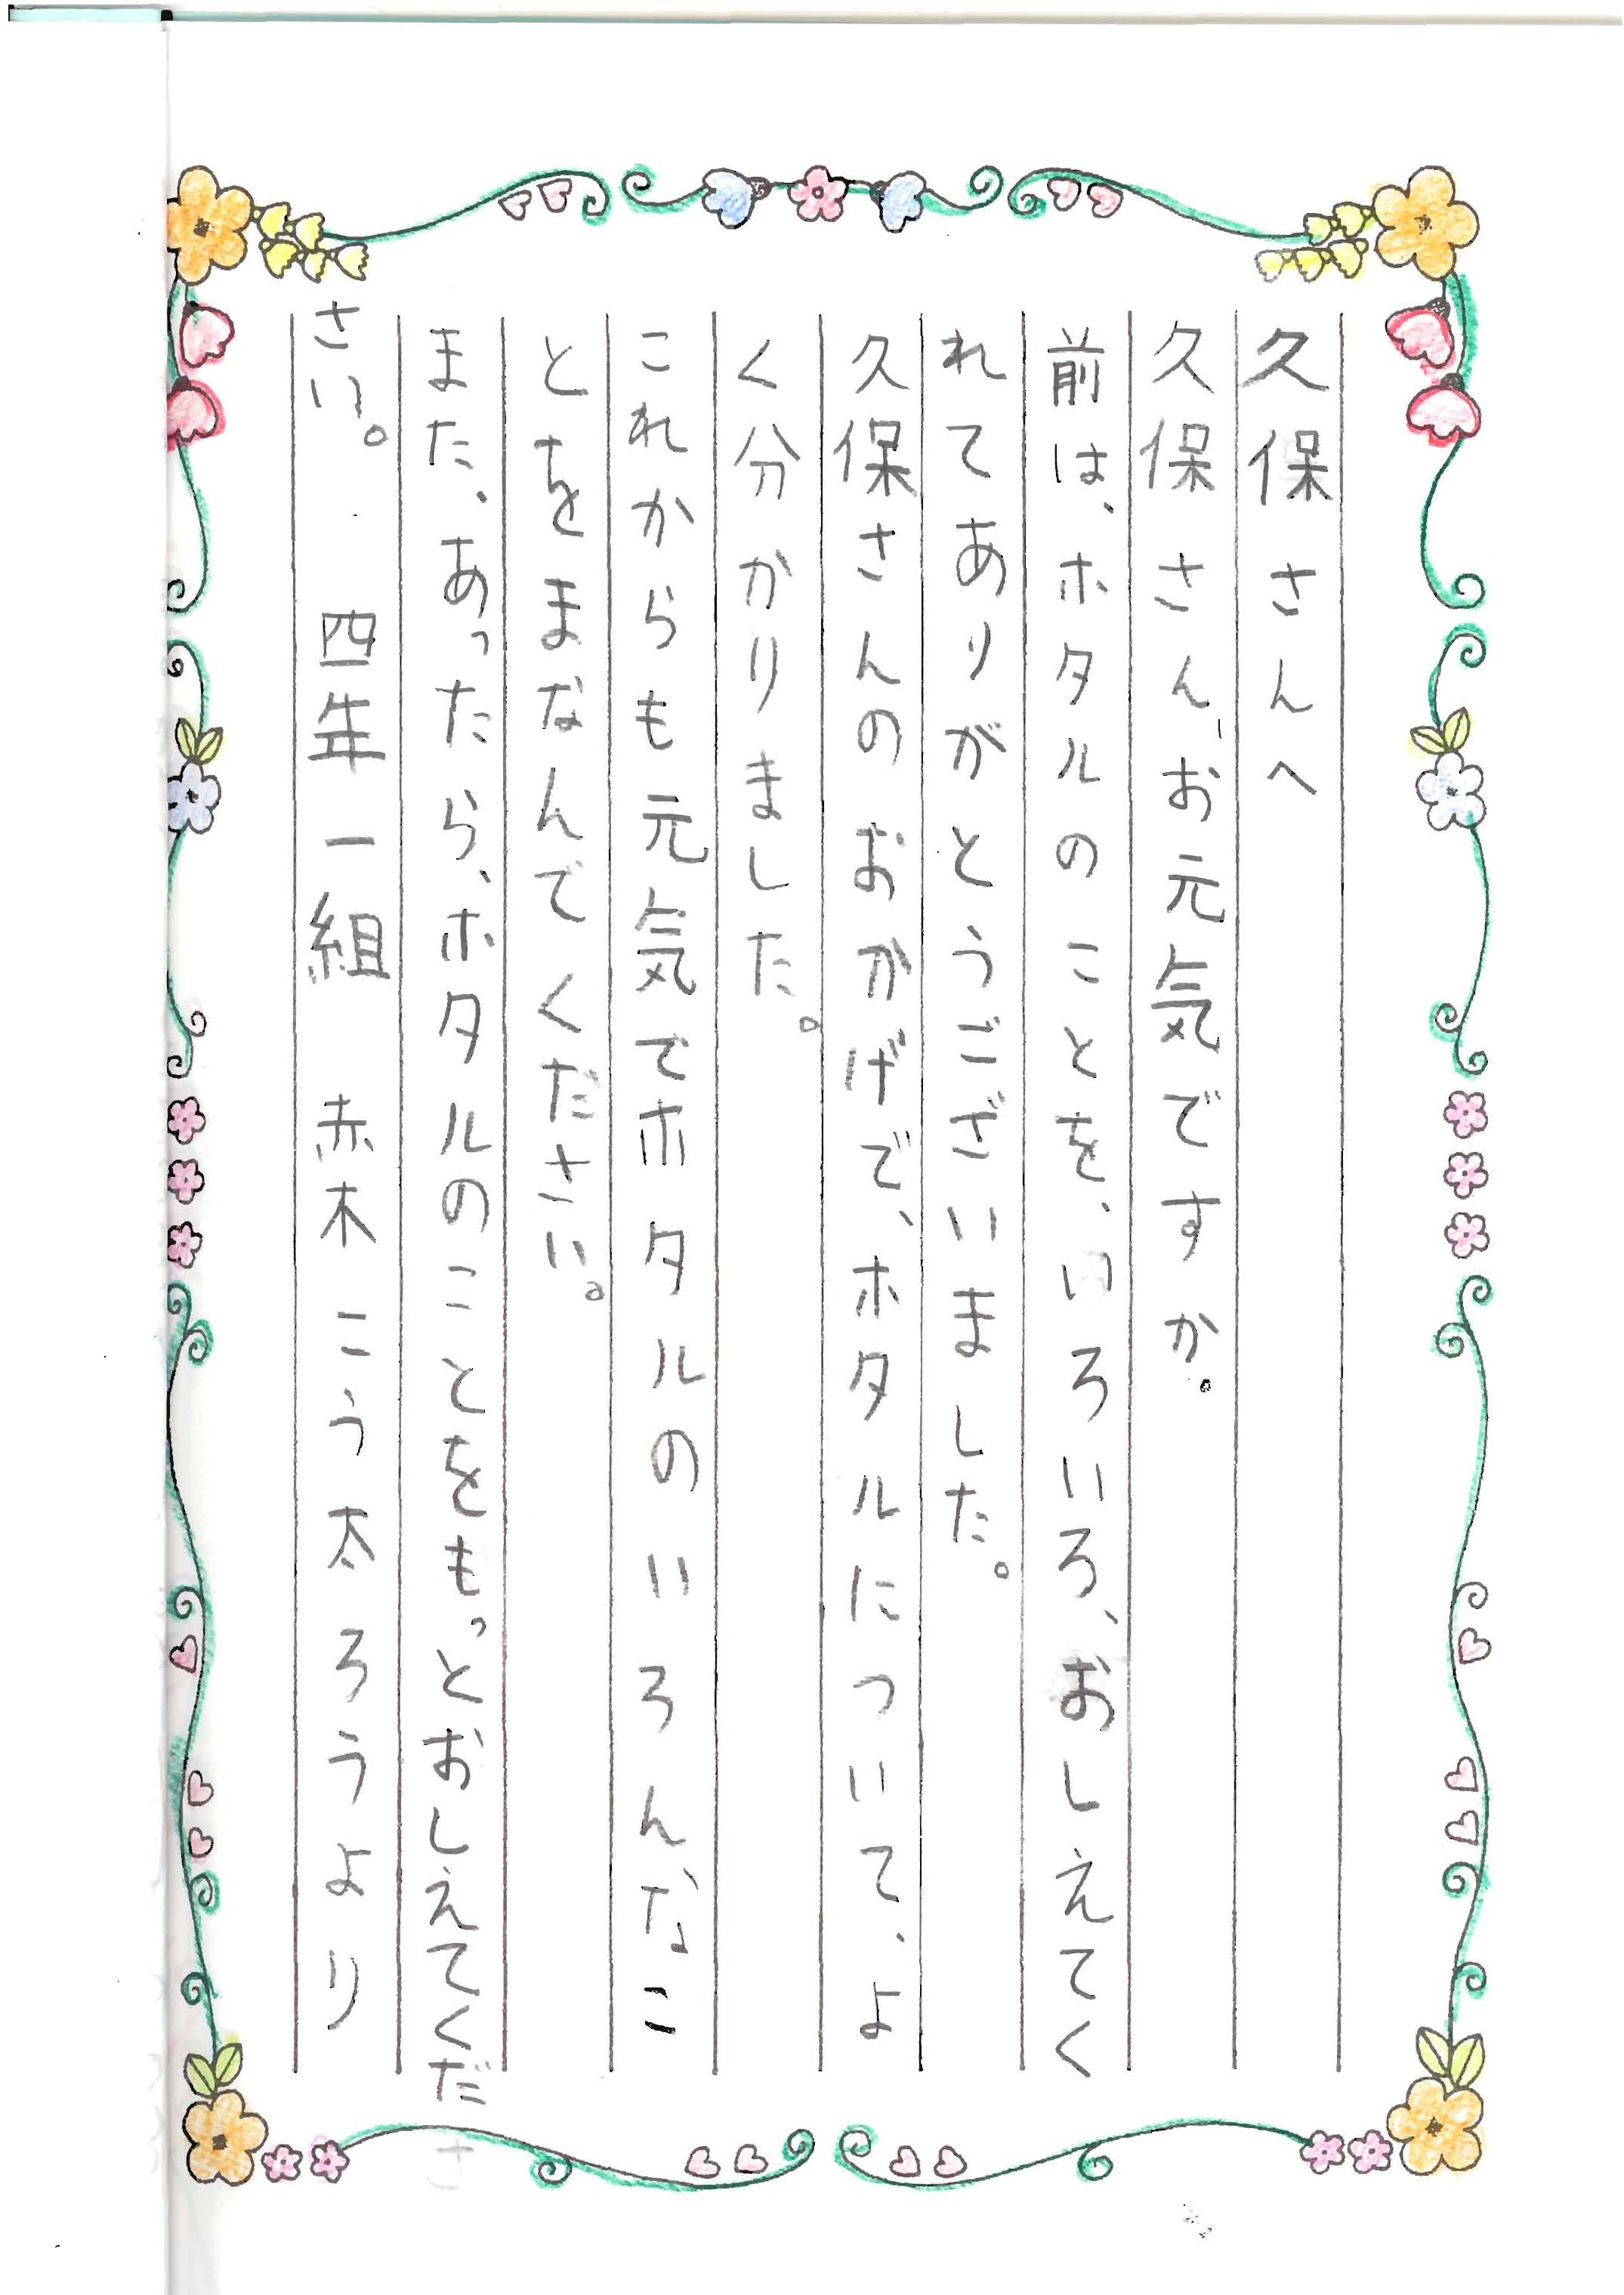 久保さんへ
久保さん、お元気ですか。
前は、ホタルのことを、いろいろ、おしえてく
れてありがとうございました。
久保さんのおかげで、ホタルについて、よ
く分かりました。
これからも元気でホタルのいろんなこ
とをまなんでください。
また、あったら、ホタルのことをもっとおしえてくだ
さい。 四年一組 赤木こう太ろうより